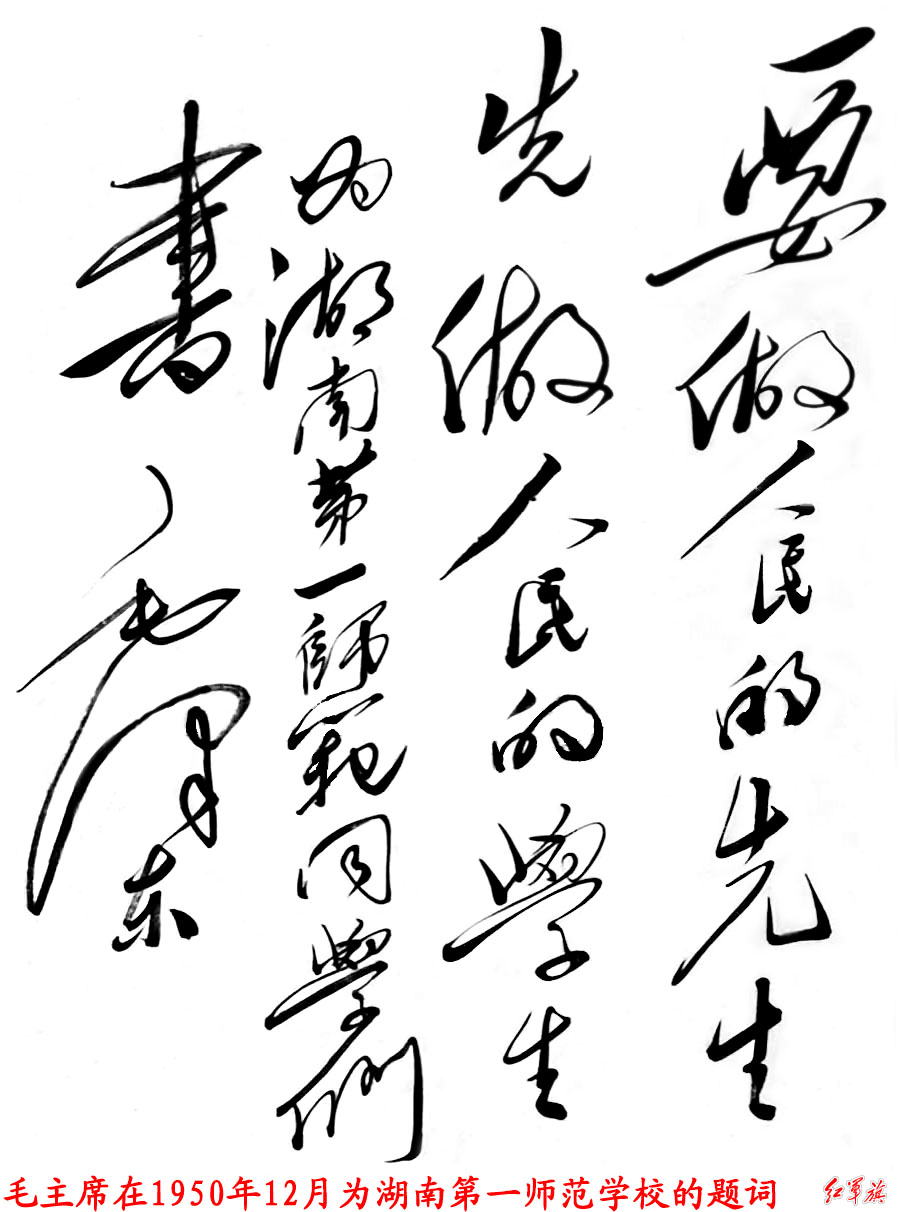 要做人民的先生
先做人民的學生
为湖南第一師範同學們
書 毛泽东
毛主席在1950年12月为湖南第一师范学校的题词
红军旗